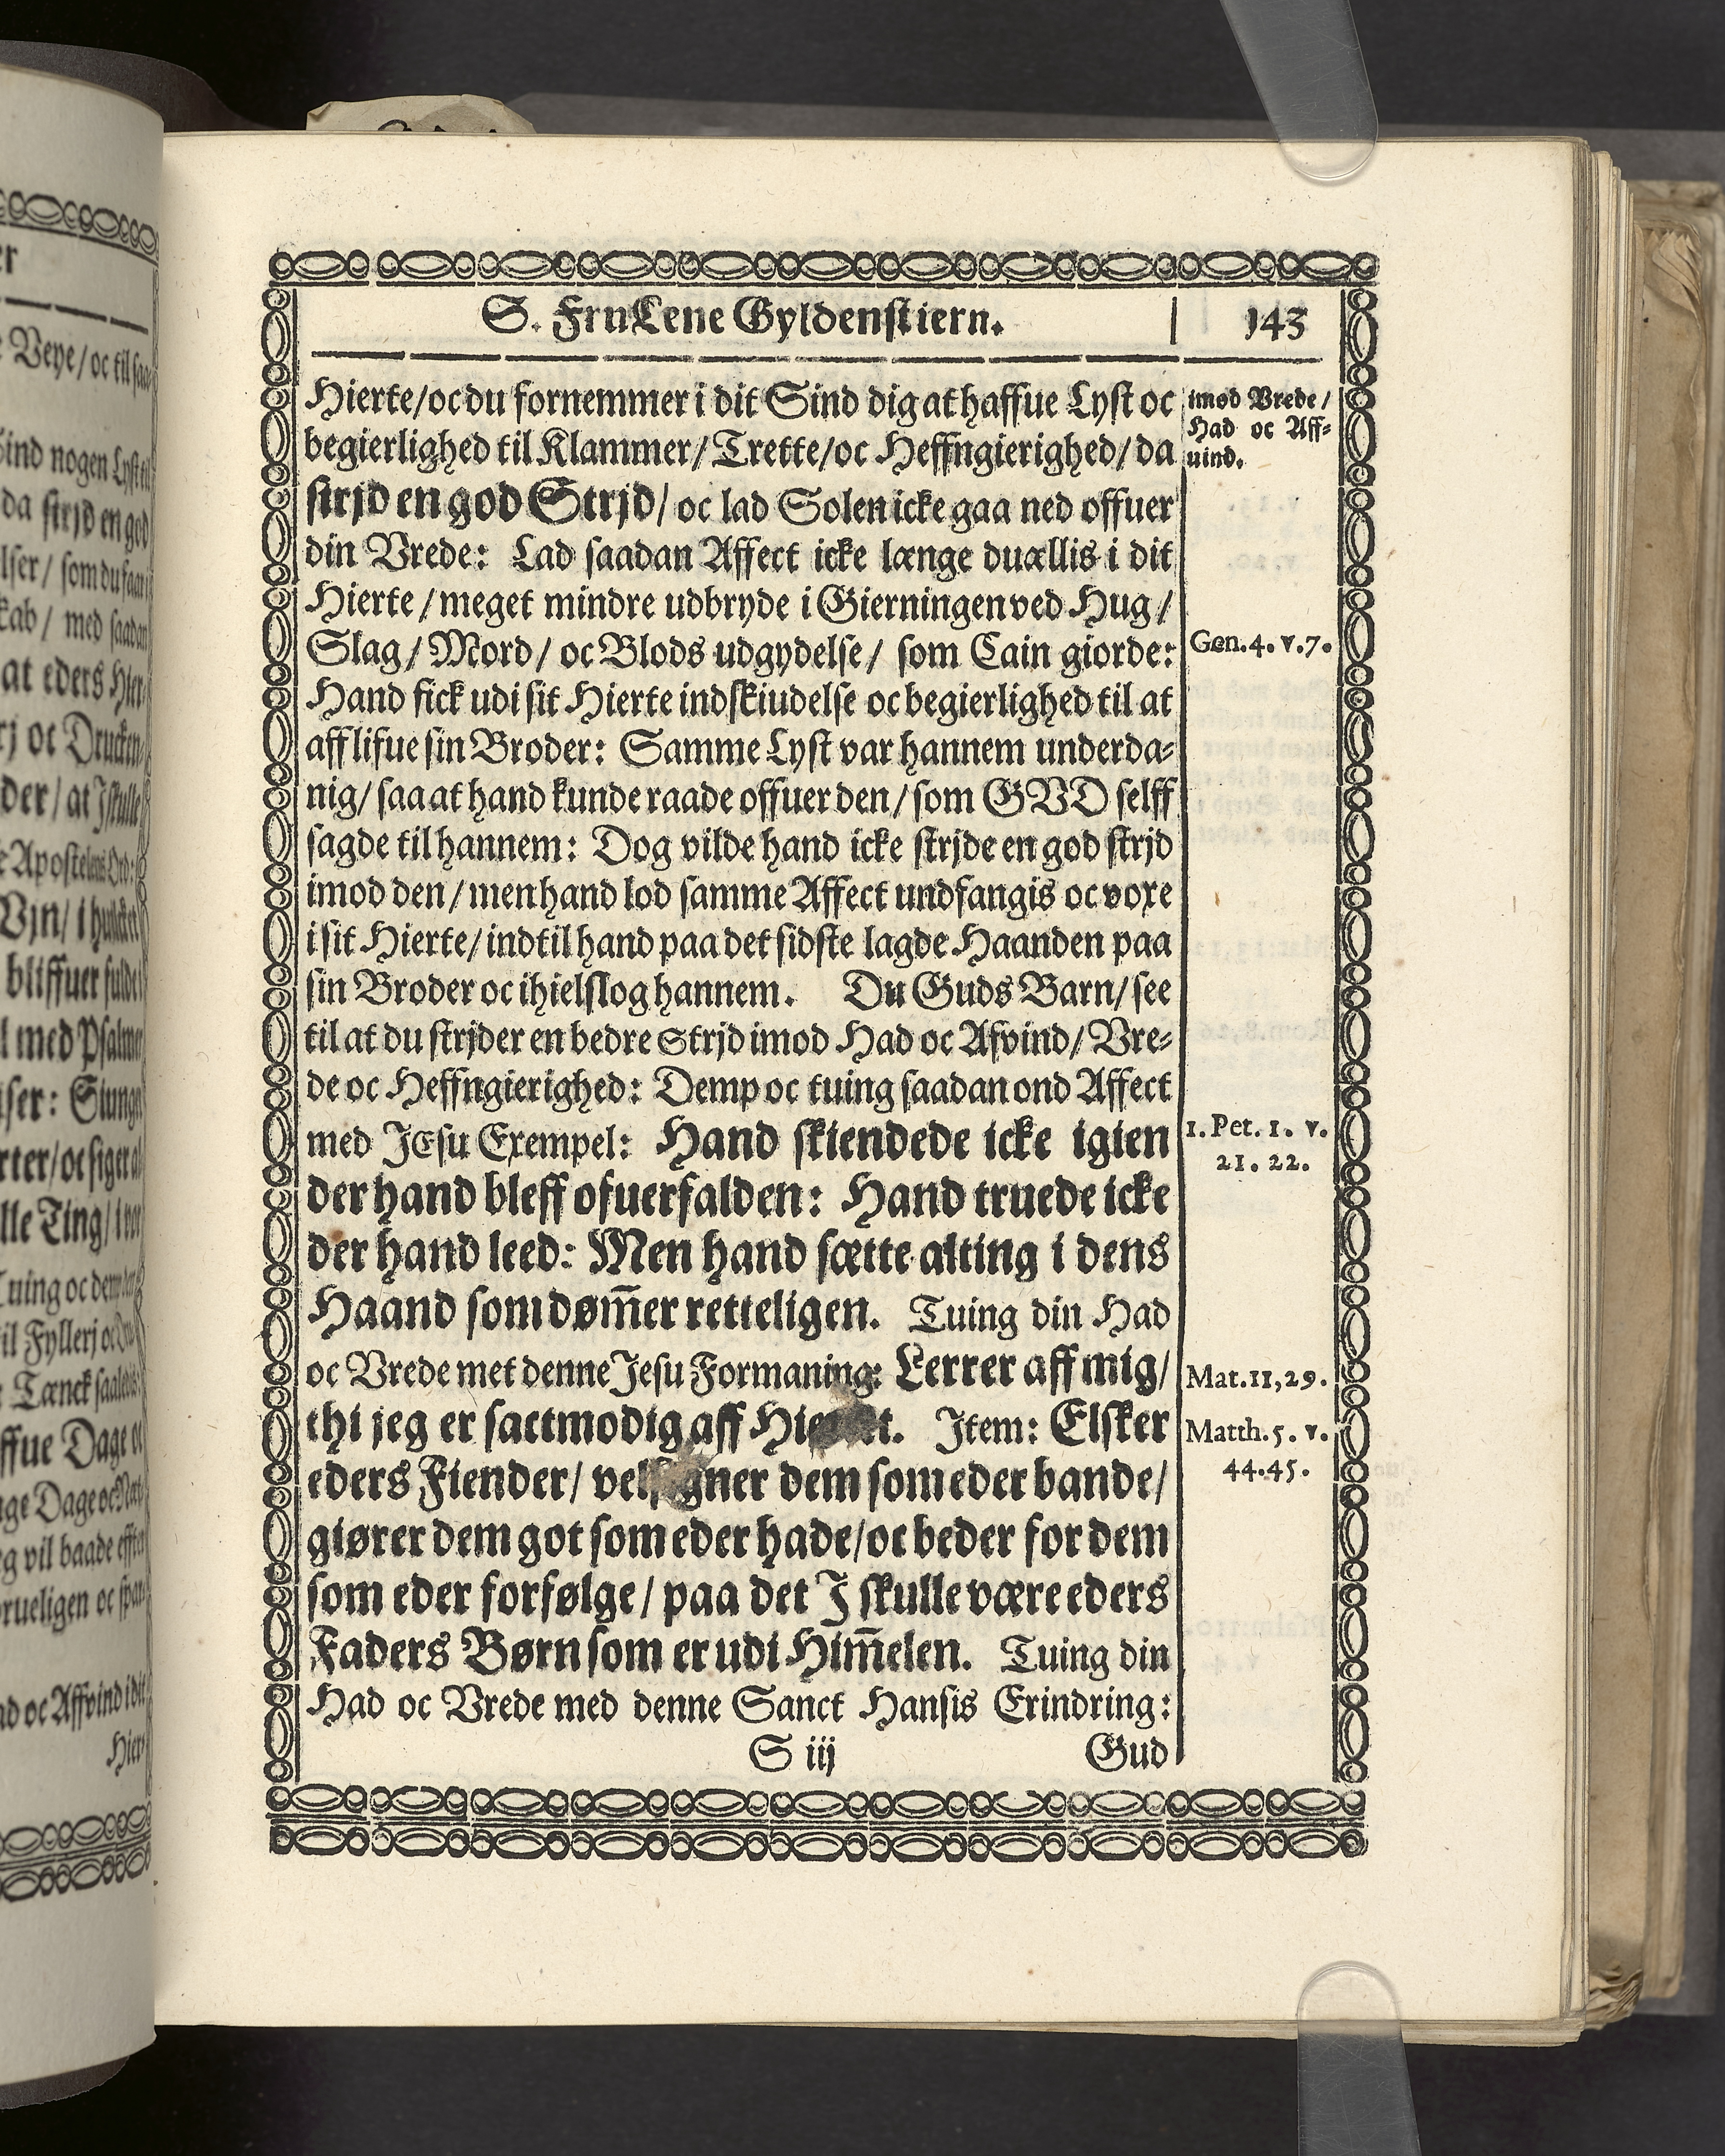 S. Fru Lene Gyldenstiern.
143
Hierte/ oc du fornemmer i dit Sind dig at haffue Lyst oc
begierlighed til Klammer/ Trette/ oc Heffngierighed/ da
strjd en god Strjd/ oc lad Solen icke gaa ned offuer
din Vrede: Lad saadan Affect icke længe duællis i dit
Hierte/ meget mindre udbryde i Gierningen ved Hug/
Slag/ Mord/ oc Blods udgydelse/ som Cain giorde:
Hand fick udi sit Hierte indskiudelse oc begierlighed til at
aff lifue sin Broder: Samme Lyst var hannem underda-
nig/ saa at hand kunde raade offuer den/ som GVD selff
sagde til hannem: Dog vilde hand icke strjde en god strjd
imod den/ men hand lod samme Affect undfangis oc voxe
i sit Hierte/ indtil hand paa det sidste lagde Haanden paa
sin Broder oc ihielslog hannem. Du Guds Barn/ see
til at du strjder en bedre Strjd imod Had oc Afvind/ Vre-
de oc Heffngierighed: Demp oc tuing saadan ond Affect
med JEsu Exempel: Hand skiendede icke igien
der hand bleff ofuerfalden: Hand truede icke
der hand leed: Men hand sætte alting i dens
Haand som døm̄er retteligen. Tuing din Had
oc Vrede met denne Jesu Formaning: Lerrer aff mig/
thi jeg er sactmodig aff Item: Elsker
eders Fiender/ dem som eder bande/
giører dem got som eder hade/ oc beder for dem
som eder forfølge/ paa det I skulle være eders
Faders Børn som er udi Him̄elen. Tuing din
Had oc Vrede med denne Sanct Hansis Erindring:
S iij
Gud
imod Vrede/
Had oc Aff-
uind.
Gen. 4. v. 7.
1. Pet. 1. v.
21. 22.
Mat. 11, 29.
Matth. 5. v.
44. 45.